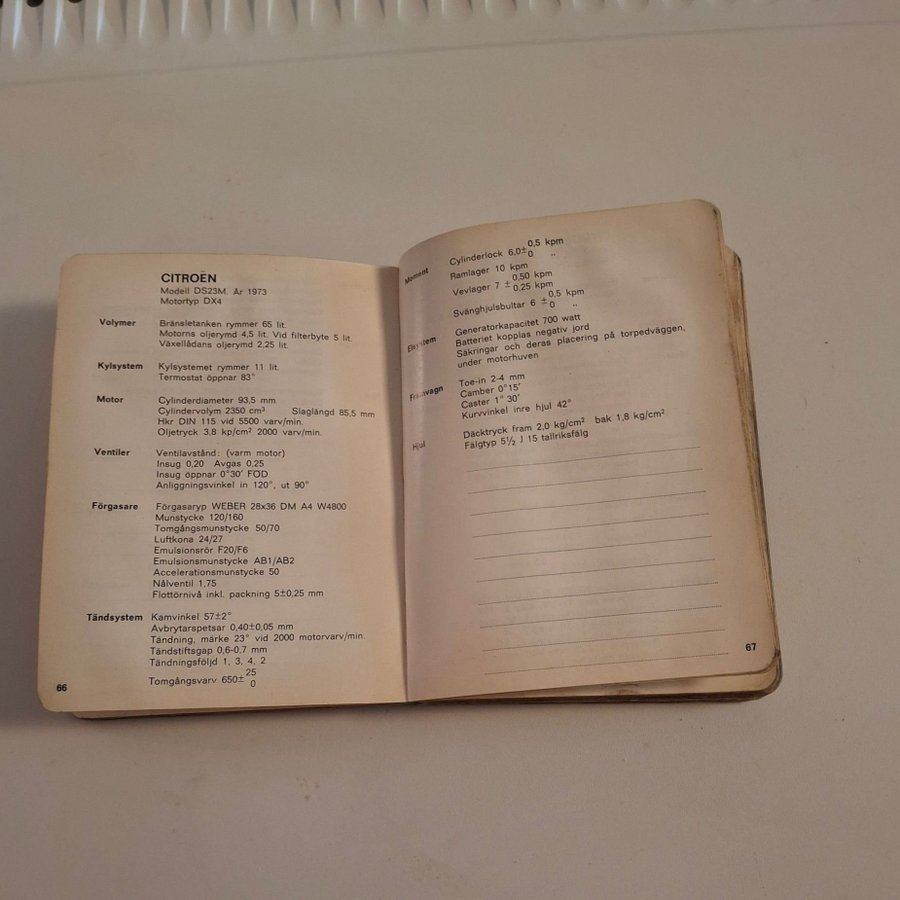 CITROËN
Modell DS23M. År 1973
Motortyp DX4
Volymer Bränsletanken rymmer 65 lit.
Motorns oljerymd 4,5 lit. Vid filterbyte 5 lit.
Växellådans oljerymd 2,25 lit.
Kylsystem Kylsystemet rymmer 11 lit.
Termostat öppnar 83°
Motor Cylinderdiameter 93,5 mm
Cylindervolym 2350 cm³ Slaglängd 85,5 mm
Hkr DIN 115 vid 5500 varv/min.
Oljetryck 3,8 kp/cm² 2000 varv/min.
Ventiler Ventilavstånd: (varm motor)
Insug 0,20 Avgas 0,25
Insug öppnar 0°30′ FÖD
Anliggningsvinkel in 120°, ut 90°
Förgasare Förgasaryp WEBER 28x36 DM A4 W4800
Munstycke 120/160
Tomgångsmunstycke 50/70
Luftkona 24/27
Emulsionsrör F20/F6
Emulsionsmunstycke AB1/AB2
Accelerationsmunstycke 50
Nålventil 1,75
Flottörnivå inkl. packning 5±0,25 mm
Tändsystem Kamvinkel 57±2°
Avbrytarspetsar 0,40±0,05 mm
Tändning, märke 23° vid 2000 motorvarv/min.
Tändstiftsgap 0,6-0,7 mm
Tändningsföljd 1, 3, 4, 2
Tomgångsvarv 650± 25 0
66
Moment Cylinderlock 6,0± 0,5 kpm 0 „
Ramlager 10 kpm
Vevlager 7 ± 0,50 kpm 0,25 kpm
Svänghjulsbultar 6 ± 0,5 kpm 0 „
Elsystem Generatorkapacitet 700 watt
Batteriet kopplas negativ jord
Säkringar och deras placering på torpedväggen,
under motorhuven
Framvagn Toe-in 2-4 mm
Camber 0°15′
Caster 1° 30′
Kurvvinkel inre hjul 42°
Hjul Däcktryck fram 2,0 kg/cm² bak 1,8 kg/cm²
Fälgtyp 5½ J 15 tallriksfälg
67